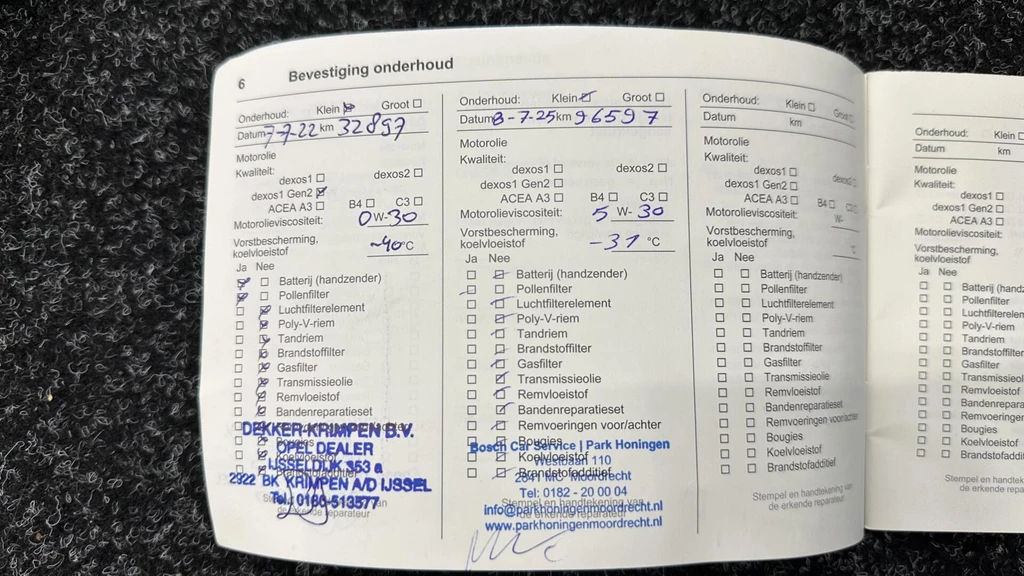 6 Bevestiging onderhoud
Onderhoud: Klein Groot
Datum 7-7-22 km 32897
Motorolie
Kwaliteit:
dexos1 dexos2
dexos1 Gen2
ACEA A3 B4 C3
Motorolieviscositeit: 0W-30
Vorstbescherming,
koelvloeistof ~40°C
Ja Nee
Batterij (handzender)
Pollenfilter
Luchtfilterelement
Poly-V-riem
Tandriem
Brandstoffilter
Gasfilter
Transmissieolie
Remvloeistof
Bandenreparatieset
DEKKER-KRIMPEN B.V.
OPEL DEALER
IJSSELDIJK 353 a
2922 BK KRIMPEN A/D IJSSEL
Tel.: 0180-513577
de erkende reparateur
Onderhoud: Klein Groot
Datum 8-7-25 km 96597
Motorolie
Kwaliteit:
dexos1 dexos2
dexos1 Gen2
ACEA A3 B4 C3
Motorolieviscositeit: 5 W-30
Vorstbescherming,
koelvloeistof -31 °C
Ja Nee
Batterij (handzender)
Pollenfilter
Luchtfilterelement
Poly-V-riem
Tandriem
Brandstoffilter
Gasfilter
Transmissieolie
Remvloeistof
Bandenreparatieset
Remvoeringen voor/achter
Bougies
Bosch Car Service | Park Honingen
Koelvloeistof
Westbaan 110
Brandstofadditief
2841 MC Moordrecht
Tel: 0182 - 20 00 04
Stempel en handtekening van
info@parkhoningenmoordrecht.nl
de erkende reparateur
www.parkhoningenmoordrecht.nl
Onderhoud: Klein Groot
Datum km
Motorolie
Kwaliteit:
dexos1 dexos2
dexos1 Gen2
ACEA A3 B4 C3
Motorolieviscositeit: W-
Vorstbescherming,
koelvloeistof °C
Ja Nee
Batterij (handzender)
Pollenfilter
Luchtfilterelement
Poly-V-riem
Tandriem
Brandstoffilter
Gasfilter
Transmissieolie
Remvloeistof
Bandenreparatieset
Remvoeringen voor/achter
Bougies
Koelvloeistof
Brandstofadditief
Stempel en handtekening van
de erkende reparateur
Onderhoud: Klein
Datum km
Motorolie
Kwaliteit:
dexos1
dexos1 Gen2
ACEA A3
Motorolieviscositeit:
Vorstbescherming,
koelvloeistof
Ja Nee
Batterij (handz
Pollenfilter
Luchtfilterelem
Poly-V-riem
Tandriem
Brandstoffilter
Gasfilter
Transmissieoli
Remvloeistof
Bandenrepara
Remvoeringen
Bougies
Koelvloeistof
Brandstofaddi
Stempel en hand
de erkende rep